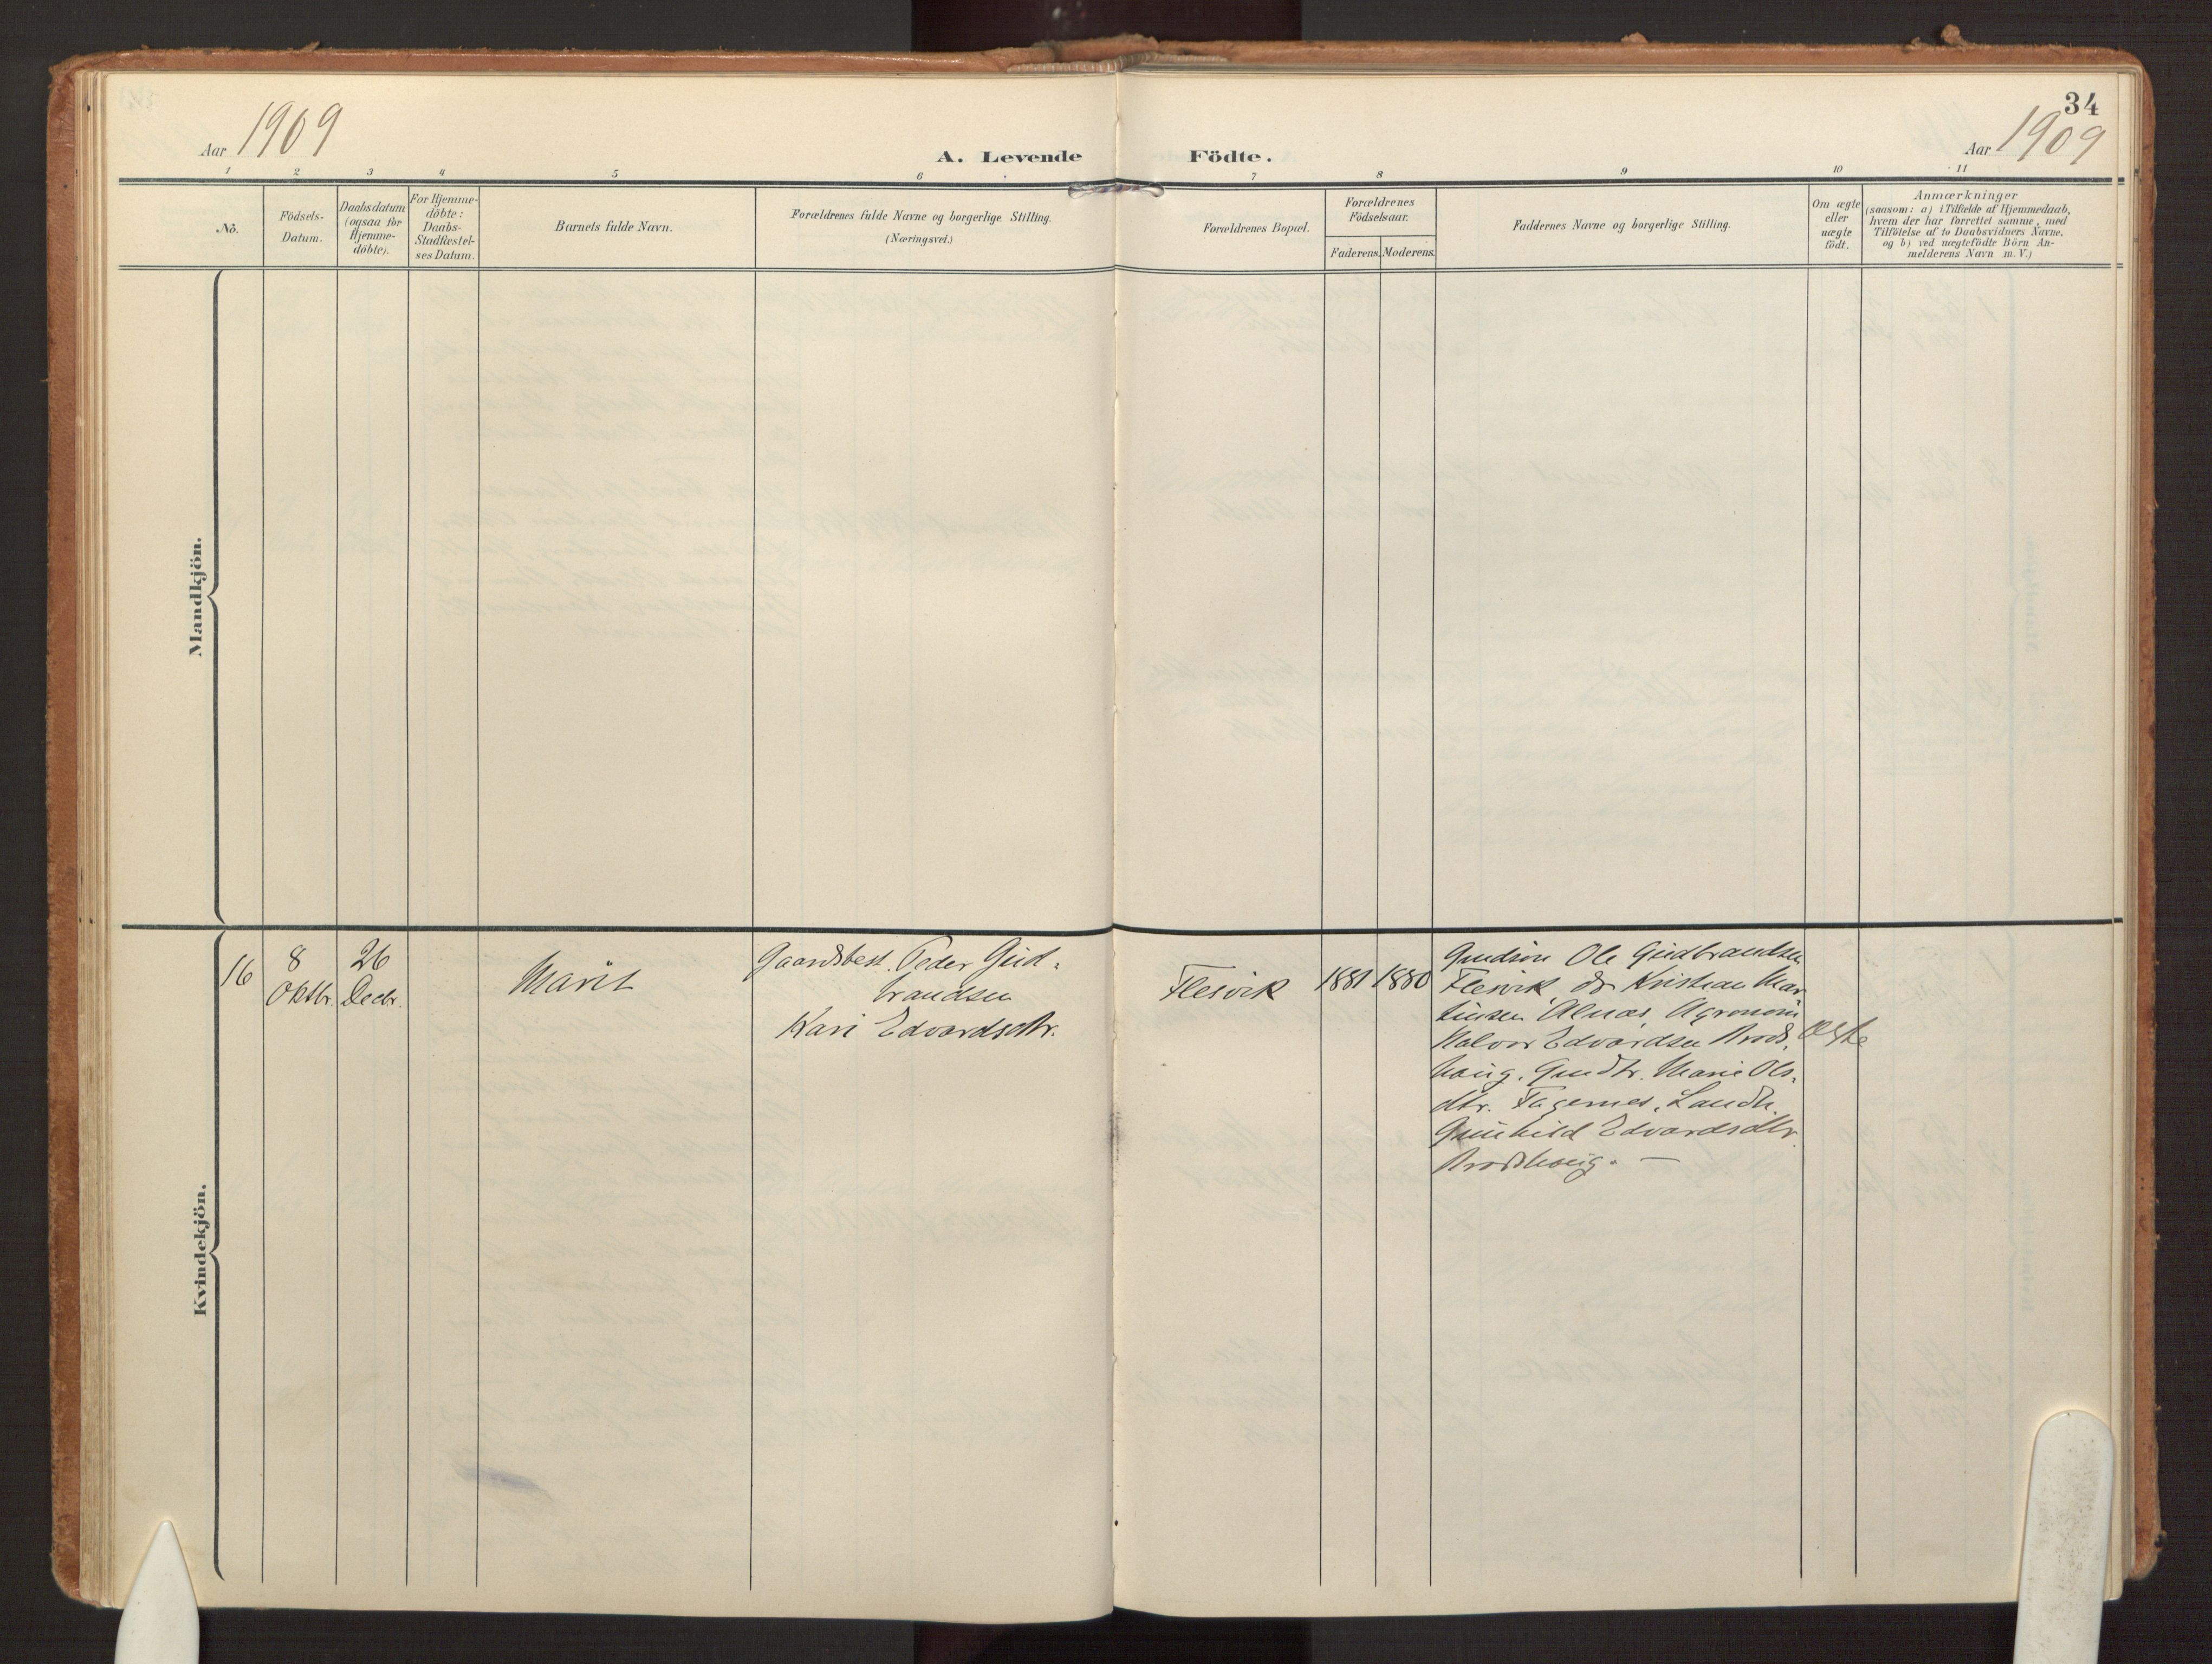 34
Aar 1909
A. Levende Födte.
Aar 1909
1 2 3 4 5 6 7 8 9 10 11
Nö.
Födsels-
Datum.
Daabsdatum
(ogsaa for
Hjemme-
döbte).
For Hjemme-
döbte:
Daabs-
Stadfæstel-
ses Datum.
Barnets fulde Navn.
Forældrenes fulde Navne og borgerlige Stilling.
(Næringsvei.)
Forældrenes Bopæl.
Forældrenes
Födselsaar.
Faderens. Moderens.
Faddernes Navne og borgerlige Stilling.
Om ægte
eller
uægte
födt.
Anmærkninger
(saasom: a) i Tilfælde af Hjemmedaab,
hvem der har forrettet samme, med
Tilföielse af to Daabsvidners Navne,
og b) ved uægtefödte Börn An-
melderens Navn m. V.)
Mandkjön.
Kvindekjön.
16
8
Oktbr.
26
Decbr.
Marit
Gaardsbest. Peder Gud-
brandsen
Kari Edvardsdtr.
Flesvik
1881 1880
Ole Gudbrandsen
Flesvik, do Kristian Mar
tinsen Alnæs, Agronom
Halvor Edvardsen Brods-
haug, Gmdtr. Marie Ols-
dtr. Fagernes, Landh.
Gunhild Edvardsdtr.
Brodshaug. —
Ægte